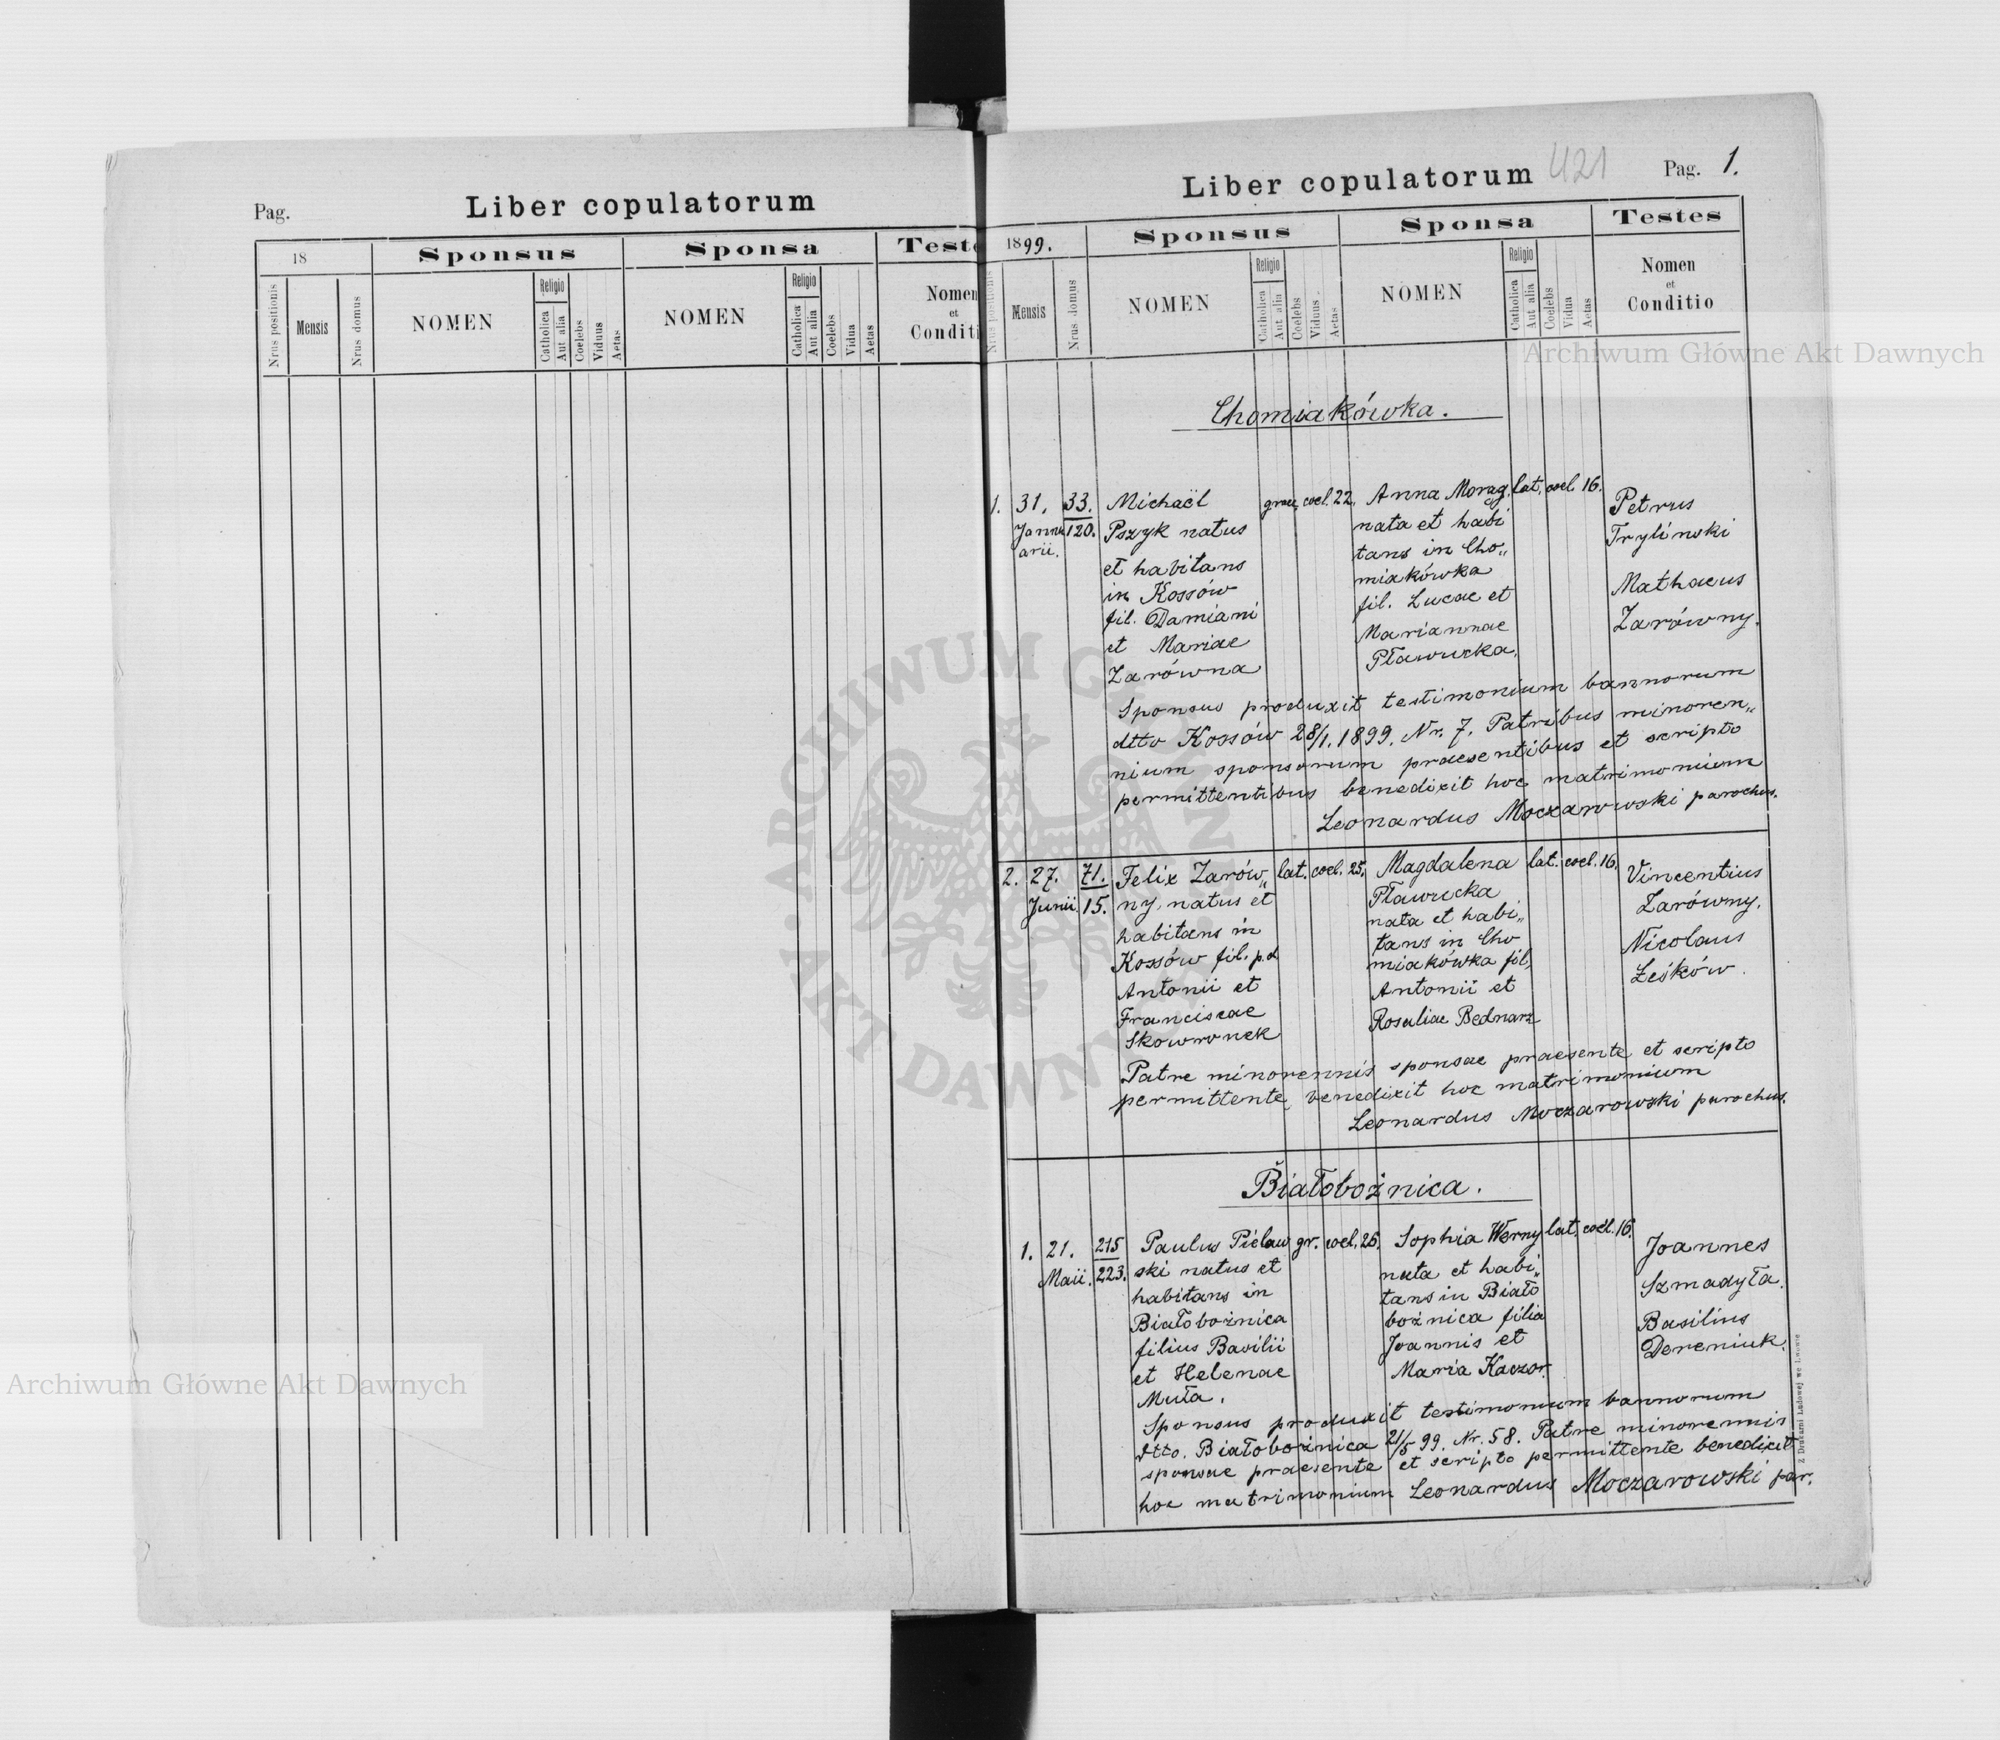 Pag.
Liber copulatorum
18
Sponsus
Sponsa
Teste
Nrus positionis
Mensis
Nrus domus
NOMEN
Religio
Catholica
Aut alia
Coelebs
Viduus
Aetas
NOMEN
Religio
Catholica
Aut alia
Coelebs
Vidua
Aetas
Nomen
et
Conditi
Liber copulatorum
421
Pag. 1.
1899.
Sponsus
Sponsa
Testes
Nrus positionis
Mensis
Nrus domus
NOMEN
Religio
Catholica
Aut alia
Coelebs
Viduus
Aetas
NOMEN
Religio
Catholica
Aut alia
Coelebs
Vidua
Aetas
Nomen
et
Conditio
Chomiakówka.
1.
31.
Janu
arii.
33.
120.
Michaël
Pszyk natus
et habitans
in Kossów
fil. Damiani
et Mariae
Zarówna
graec. coel. 22.
Anna Morąg
nata et habi
tans in Cho„
miakówka
fil. Lucae et
Mariannae
Pławucka.
lat. coel. 16.
Petrus
Tryliński
Mathaeus
Zarówny.
Sponsus produxit testimonium bannorum
dtto Kossów 28/1. 1899. Nr. 7. Patribus minoren„
nium sponsorum praesentibus et scripto
permittentibus benedixit hoc matrimonium
Leonardus Moczarowski parochus.
2.
27.
Junii
71.
15.
Felix Zarów„
ny, natus et
habitans in
Kossów fil. p.d.
Antonii et
Franciscae
Skowronek
lat. coel. 25.
Magdalena
Pławucka
nata et habi„
tans in Cho
miakówka fil.
Antonii et
Rosaliae Bednarz
lat. coel. 16.
Vincentius
Zarówny.
Nicolaus
Leśków.
Patre minorennis sponsae praesente et scripto
permittente benedixit hoc matrimonium
Leonardus Moczarowski parochus.
Białobożnica.
1.
21.
Maii.
215
223.
Paulus Pielaw
ski natus et
habitans in
Białobożnica
filius Basilii
et Helenae
Muła.
gr. coel. 26.
Sophia Werny
nata et habi„
tans in Biało
bożnica filia
Joannis et
Maria Kaczor.
lat. coel. 16.
Joannes
Szmadyła.
Basilius
Dereniuk.
Sponsus produxit testimonium bannorum
dtto. Białobożnica 21/5 99. Nr. 58. Patre minorennis
sponsae praesente et scripto permittente benedixit
hoc matrimonium Leonardus Moczarowski par.
Z Drukarni Ludowej we Lwowie
Archiwum Główne Akt Dawnych
Archiwum Główne Akt Dawnych